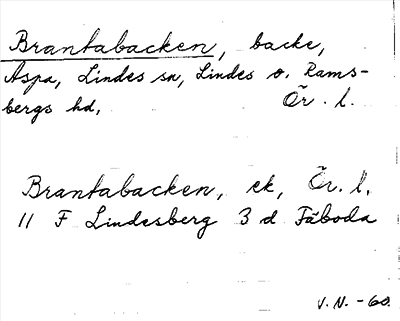 Brantabacken, backe,
Aspa, Lindes sn, Lindes o. Rams-
bergs hd, Ör. l.
Brantabacken, ek, Ör. l.
11 F Lindesberg 3 d Fåboda
V. N. -60.